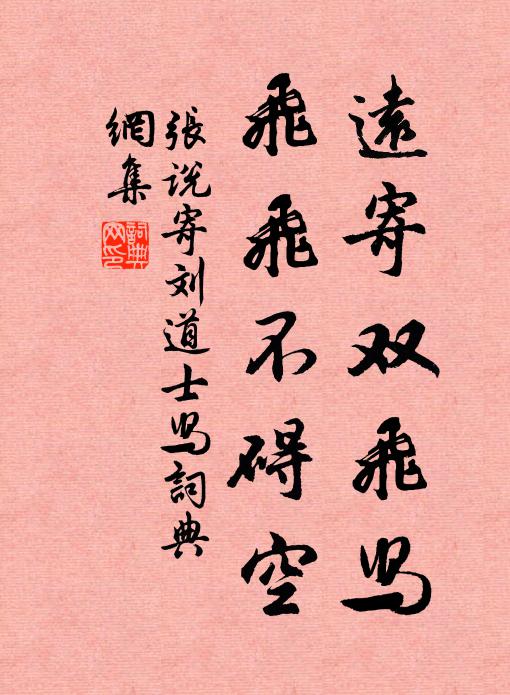 遠寄双飛舄
飛飛不碍空
張说寄刘道士舄詞典
網集
詞典
网印